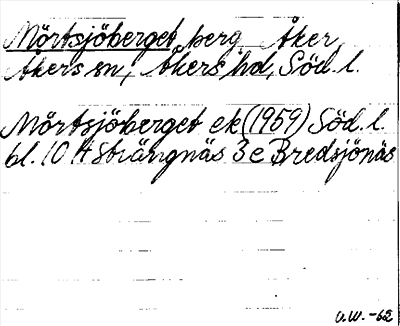 Mörtsjöberget, berg, Åker,
Åkers sn, Åkers hd, Söd. l.
Mörtsjöberget ek (1959) Söd. l.
bl. 10 H Strängnäs 3 e Bredsjönäs
U.W. -62